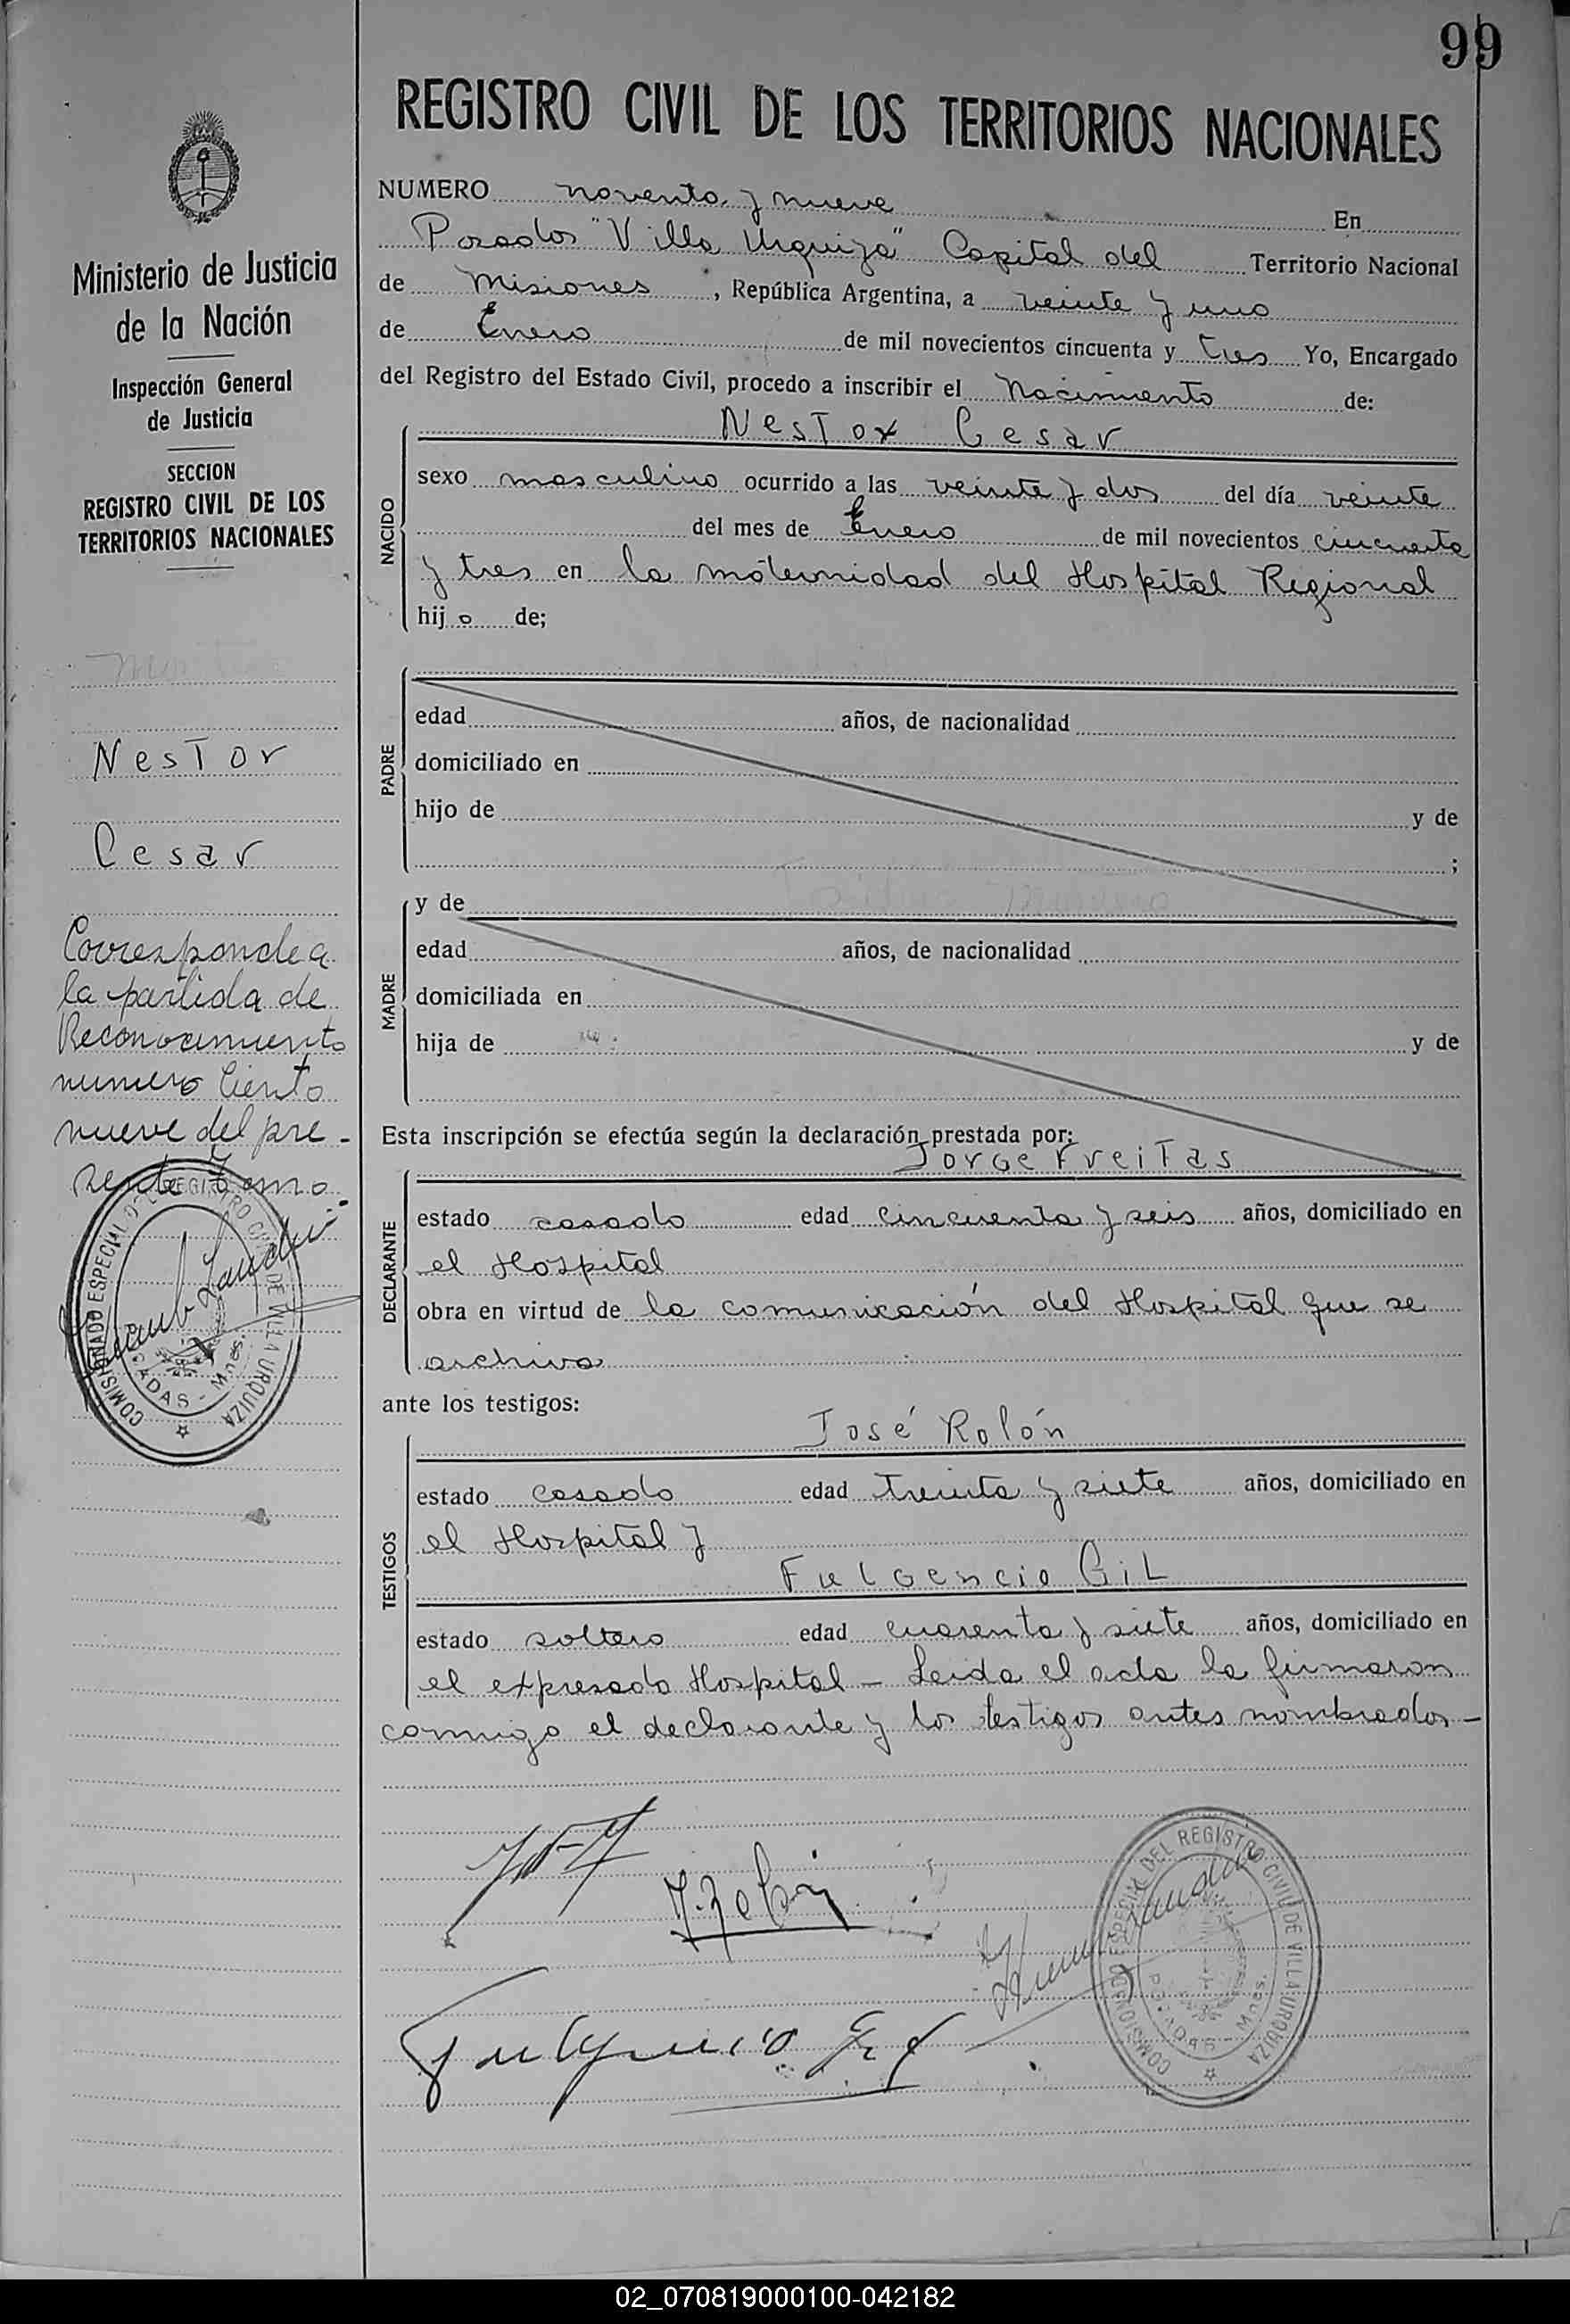 99
REGISTRO CIVIL DE LOS TERRITORIOS NACIONALES
Ministerio de Justicia
de la Nación
Inspección General
de Justicia
SECCION
REGISTRO CIVIL DE LOS
TERRITORIOS NACIONALES
Nestor
Cesar
Corresponde a
la partida de
Reconocimiento
numero Ciento
nueve del pre-
sente Tomo.
COMISIONADO ESPECIAL DEL REGISTRO CIVIL DE VILLA URQUIZA
POSADAS - Mnes.
NUMERO noventa y nueve En
Posadas "Villa Urquiza" Capital del Territorio Nacional
de Misiones, República Argentina, a veinte y uno
de Enero de mil novecientos cincuenta y tres Yo, Encargado
del Registro del Estado Civil, procedo a inscribir el Nacimiento de:
NACIDO
Nestor Cesar
sexo masculino ocurrido a las veinte y dos del día veinte
del mes de Enero de mil novecientos cincuenta
y tres en la maternidad del Hospital Regional
hijo de;
PADRE
edad años, de nacionalidad
domiciliado en
hijo de y de
;
MADRE
y de
edad años, de nacionalidad
domiciliada en
hija de y de
Esta inscripción se efectúa según la declaración prestada por:
DECLARANTE
Jorge Freitas
estado casado edad cincuenta y seis años, domiciliado en
el Hospital
obra en virtud de la comunicación del Hospital que se
archiva
ante los testigos:
TESTIGOS
José Rolón
estado casado edad treinta y siete años, domiciliado en
el Hospital y
Fulgencio Gil
estado soltero edad cuarenta y siete años, domiciliado en
el expresado Hospital - Leida el acta la firmaron
conmigo el declarante y los testigos antes nombrados-
Fulgencio Gil
COMISIONADO ESPECIAL DEL REGISTRO CIVIL DE VILLA URQUIZA
POSADAS - Mnes.
02_070819000100-042182